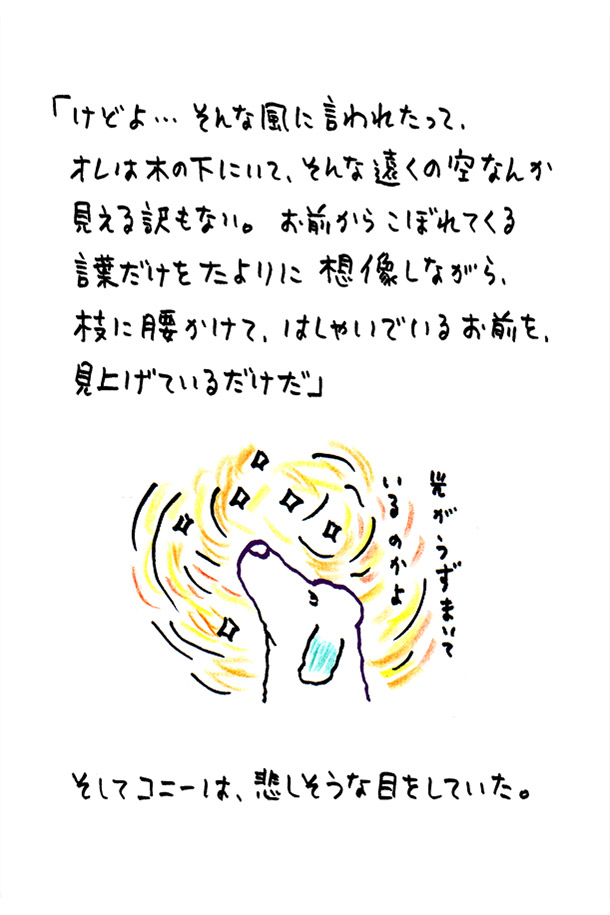 「けどよ… そんな風に言われたって、
オレは木の下にいて、そんな遠くの空なんか
見える訳もない。 お前から こぼれてくる
言葉だけをたよりに 想像しながら、
枝に腰かけて、はしゃいでいるお前を、
見上げているだけだ」
光がうずまいて
いるのかよ
そしてコニーは、悲しそうな目をしていた。